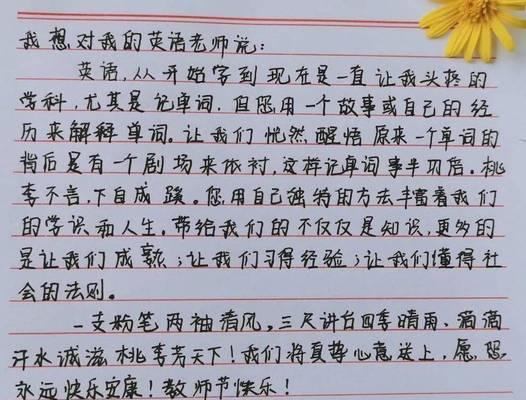 我想对我的英语老师说：
英语，从开始学到现在是一直让我头疼的
学科，尤其是记单词，但您用一个故事或自己的经
历来解释单词。让我们恍然醒悟原来一个单词的
背后是有一个剧场来依衬，这样记单词事半功倍。桃
李不言，下自成蹊。您用自己独特的方法丰富着我们
的学识和人生。带给我们的不仅仅是知识，更多的
是让我们成熟；让我们习得经验；让我们懂得社
会的法则。
一支粉笔两袖清风，三尺讲台四季晴雨、滴滴
汗水诚滋桃李芳天下！我们将真挚心意送上，愿您
永远快乐安康！教师节快乐！